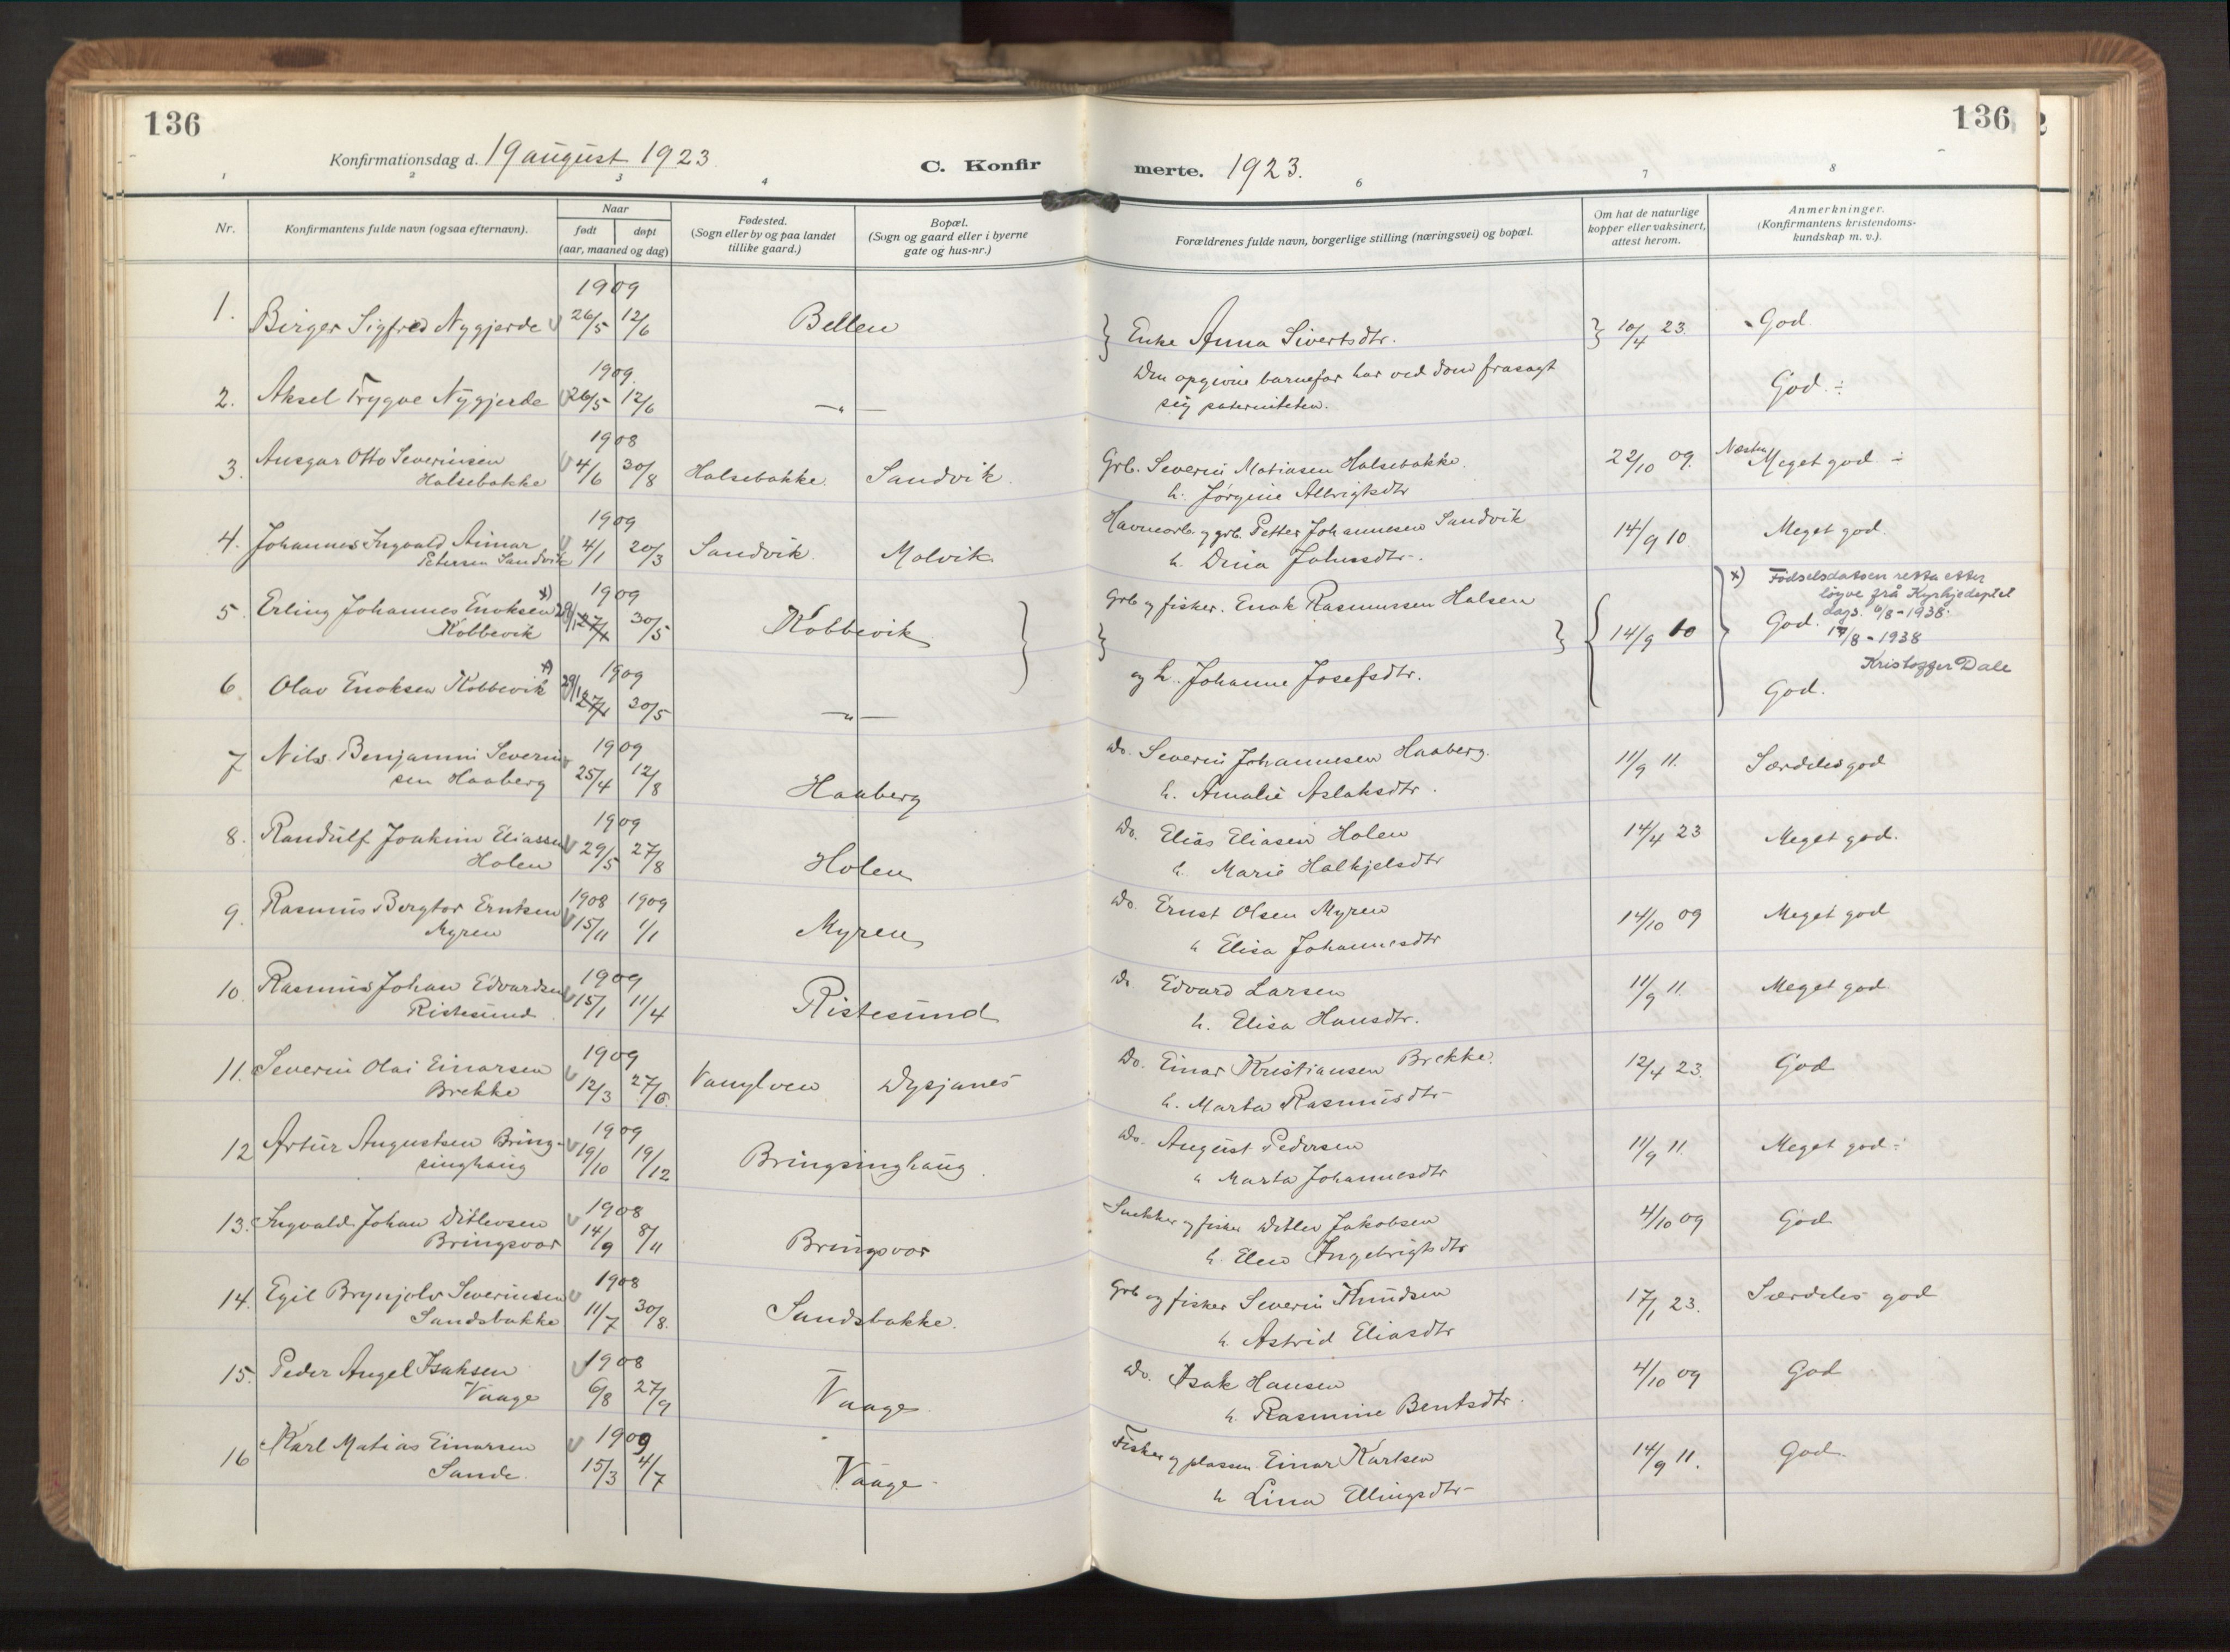 136
136
Konfirmationsdag d. 19 august 1923
C. Konfir
merte. 1923.
1 2 3 4
6 7 8
Nr.
Konfirmantens fulde navn (ogsaa efternavn).
Naar
født døpt
(aar, maaned og dag)
Fødested.
(Sogn eller by og paa landet
tillike gaard.)
Bopæl.
(Sogn og gaard eller i byerne
gate og hus-nr.)
Forældrenes fulde navn, borgerlige stilling (næringsvei) og bopæl.
Om hat de naturlige
kopper eller vaksinert,
attest herom.
Anmerkninger.
(Konfirmantens kristendoms-
kundskap m. v.).
1909
1. Birger Sigfred Nygjerde 26/5 12/6 Belten } Enke Anna Sivertsdtr. } 10/4 23. God.
1909.
2. Aksel Trygve Nygjerde 26/5 12/6 —"— Den opgivne barnefar har ved dom frasagt God. ÷
sig paterniteten.
1908
3. Ansgar Otto Severinsen 4/6 30/8 Halsebakke. Sandvik. Grb. Severin Matiasen Halsebakke. 22/10 09. Næsten Meget god. ÷
Halsebakke h. Jørgine Albrigtsdtr
1909
4. Johannes Ingvald Aimar 4/1 20/3 Sandvik. Molvik Havnearb. og grb. Petter Johannesen Sandvik 14/9 10. Meget god.
Petersen Sandvik h. Dina Johnsdtr.
1909
5. Erling Johannes Enoksen x) 29/1 27/1 30/5 Kobbevik } Grb og fisker. Enok Rasmussen Halsen 14/9 10 God.
Kobbevik
x) Fødselsdatoen retta etter
løyve frå Kyrkjedeptet
dags. 6/8-1938.
17/8-1938
Kristoffer Dale
1909
6. Olav Enoksen Kobbevik x) 29/1 27/1 30/5 —"— og h. Johanne Josefsdtr. God.
1909
7 Nils Benjamin Severin 25/4 12/8 Haaberg Do. Severin Johannesen Haaberg. 11/9 11. Særdeles god
sen Haaberg h. Amalie Aslaksdtr.
1909
8. Randulf Joakim Eliassen 29/5 27/8 Holen Do. Elias Eliasen Holen 14/4 23 Meget god.
Holen h. Marie Halkjelsdtr
1908 1909
9. Rasmus Bergtor Erntsen 15/11 1/1 Myren Do. Ernst Olsen Myren 14/10 09 Meget god
Myren h Elisa Johannesdtr
1909
10. Rasmus Johan Edvardsen 15/1 11/4 Ristesund Do Edvard Larsen 11/9 11. Meget god
Ristesund h. Elisa Hansdtr.
1909
11. Severin Olai Einarsen 12/3 27/6. Vanylven Dysjanes Do. Einar Kristiansen Brekke. 12/4 23. God
Brekke h. Marta Rasmusdtr
1909
12 Artur Augustsen Bring- 19/10 19/12 Bringsinghaug. Do. August Pedersen 11/9 11. Meget god ÷
singhaug h Marta Johannesdtr
1908
13. Ingvald Johan Ditlevsen 14/9 8/11 Bringsvor Snekker og fisker Ditlev Jakobsen 4/10 09 God
Bringsvor h. Elen Ingebrigtsdtr
1908
14. Egil Brynjolv Severinsen 11/7 30/8. Sandsbakke. Grb og fisker Severin Knudsen 17/1 23. Særdeles god
Sandsbakke h. Astrid Eliasdtr
1908
15. Peder Angel Isaksen 6/8 27/9 Vaage. Do. Isak Hansen 4/10 09 God
Vaage h. Rasmine Bentsdtr.
1909
16 Karl Matias Einarsen 15/3 4/7 Vaage Fisker og plassm. Einar Karlsen 14/9 11. God.
Sande. h Lina Ellingsdtr